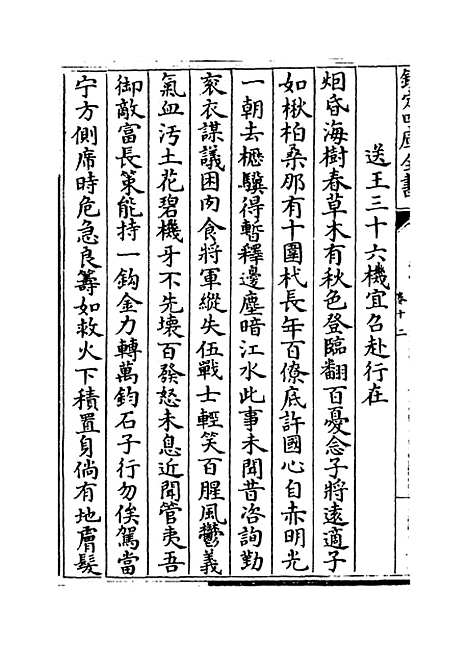 欽定四庫全書
卷十二
送王三十六機宜召赴行在
炯昏海樹春草木有秋色登臨翻百憂念子將遠適子
如楸柏桑那有十圍杙長年百僚底許國心自赤明光
一朝去櫪驥得暫釋邊塵暗江水此事未聞昔咨詢勤
衮衣謀議困肉食將軍縱失伍戰士輕笑百腥風鬱義
氣血汚土花碧機牙不先壞百發怒未息近聞管夷吾
御敵富長策能持一鈎金力轉萬鈞石子行勿俟駕當
宁方側席時危急良籌如救火下積置身倘有地膚髮